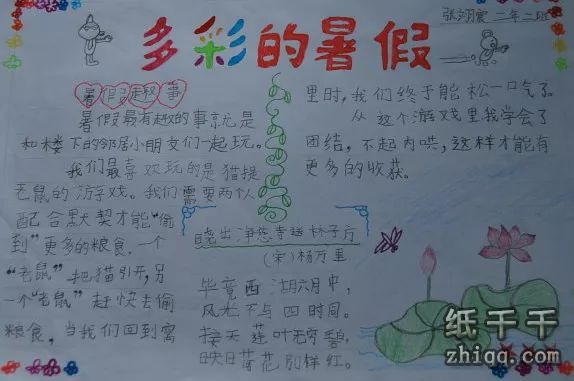 多彩的暑假
张翊宸 二年二班
暑假趣事
暑假最有趣的事就是
和楼下的邻居小朋友们一起玩。
我们最喜欢玩的是猫捉
老鼠的游戏。我们需要两个人
配合默契才能“偷
到”更多的粮食。一个
“老鼠”把猫引开,另
一个“老鼠”赶快去偷
粮食,当我们回到窝
里时,我们终于能松一口气了。
从这个游戏里我学会了
团结,不起内哄,这样才能有
更多的收获。
晓出净慈寺送林子方
(宋)杨万里
毕竟西湖六月中,
风光不与四时同。
接天莲叶无穷碧,
映日荷花别样红。
纸千千
zhiqq.com